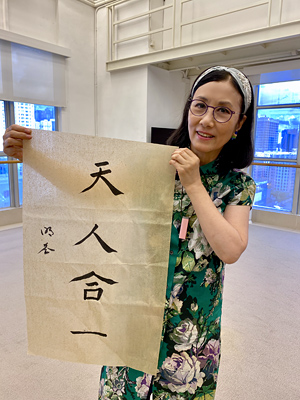 天人合一
明荃